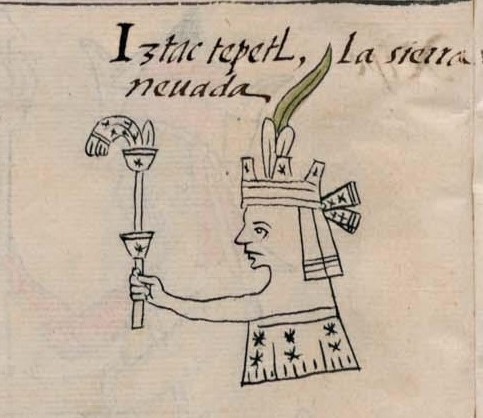 Iztac tepetl, la sierra
neuada